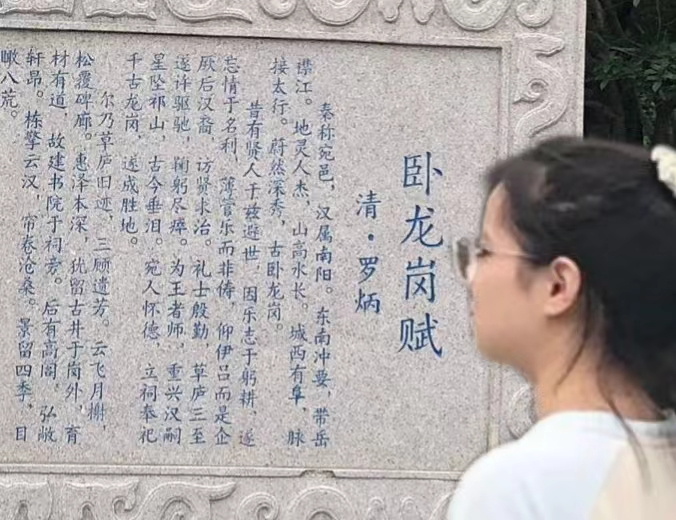 卧龙岗赋
清·罗炳
秦称宛邑，汉属南阳。东南冲要，带岳
襟江。地灵人杰，山高水长。城西有阜，脉
接太行。蔚然深秀，古卧龙岗。
昔有贤人于兹避世，因乐志于躬耕，遂
忘情于名利，薄管乐而非俦，仰伊吕而是企
厥后汉裔，访贤求治。礼士殷勤，草庐三至
遂许驱驰，鞠躬尽瘁。为王者师，重兴汉嗣
星坠祁山，古今垂泪。宛人怀德，立祠奉祀
千古龙岗，遂成胜地。
尔乃草庐旧迹，三顾遗芳。云飞月榭，
松覆碑廊。惠泽本深，犹留古井于岗外，育
材有道，故建书院于祠旁。后有高阁，弘敞
轩昂。栋擎云汉，帘卷沧桑。景留四季，目
瞰八荒。